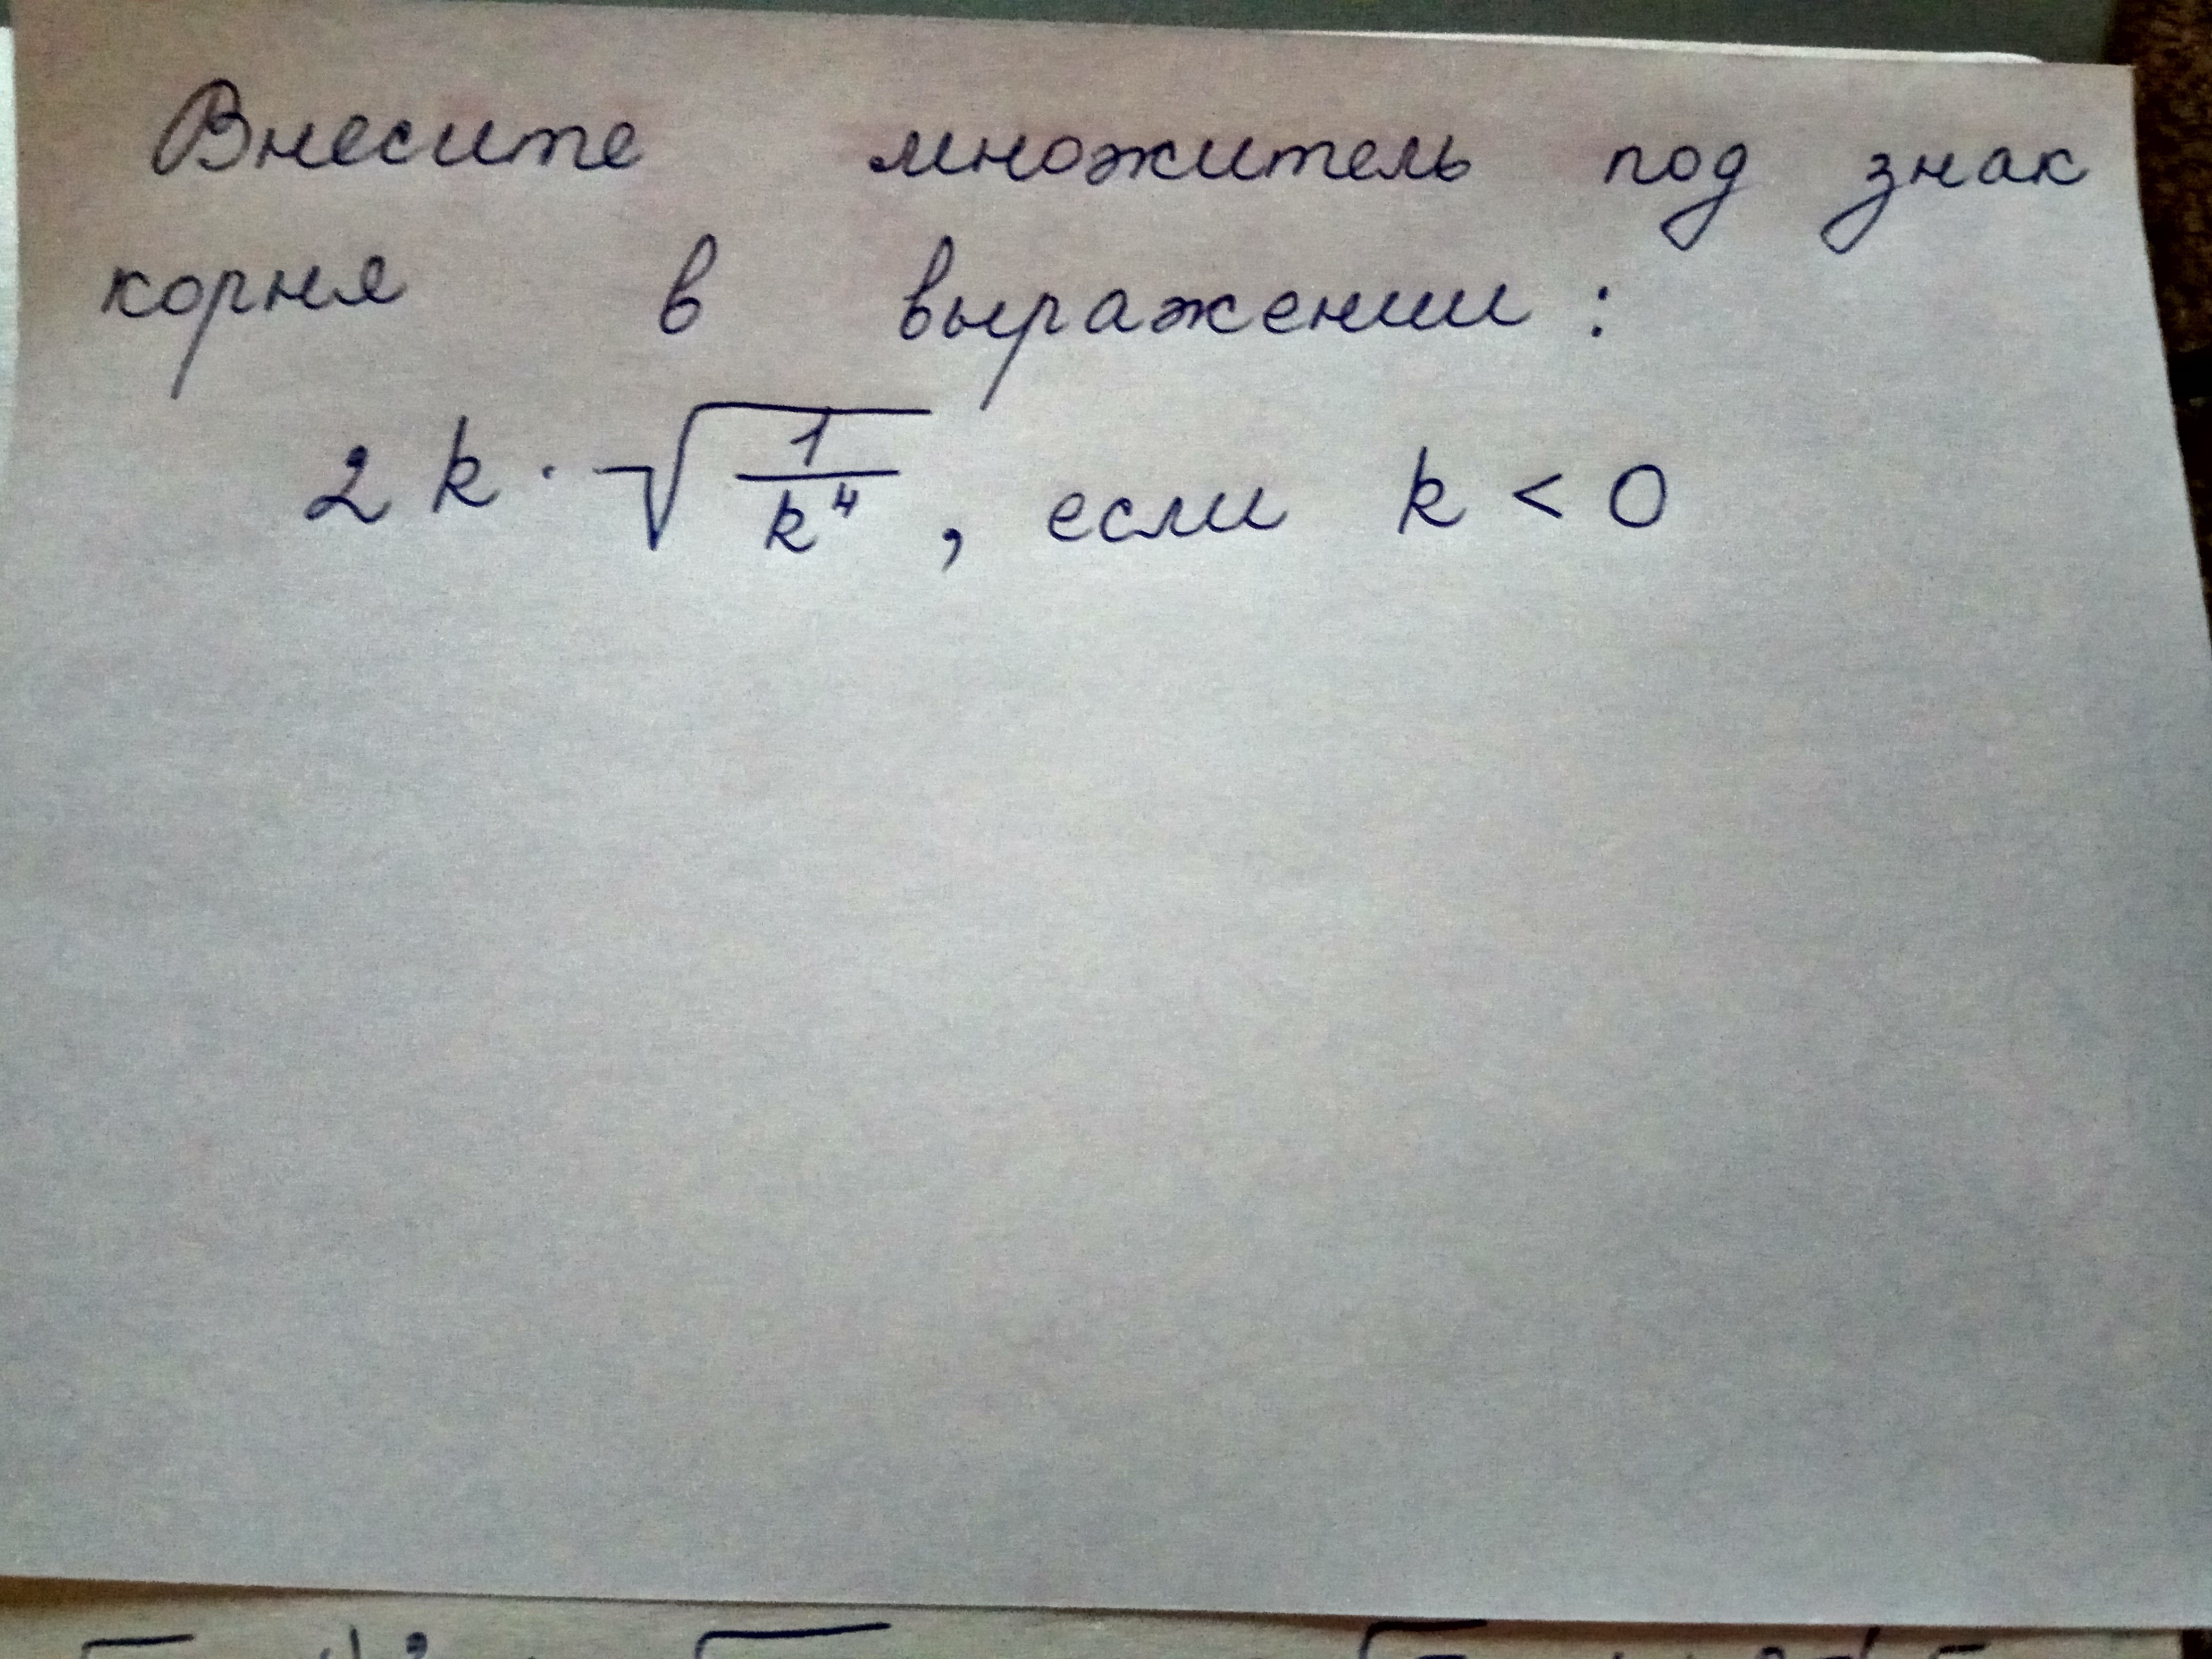 Внесите множитель под знак
корня в выражении:
2k · √(1/k⁴), если k < 0